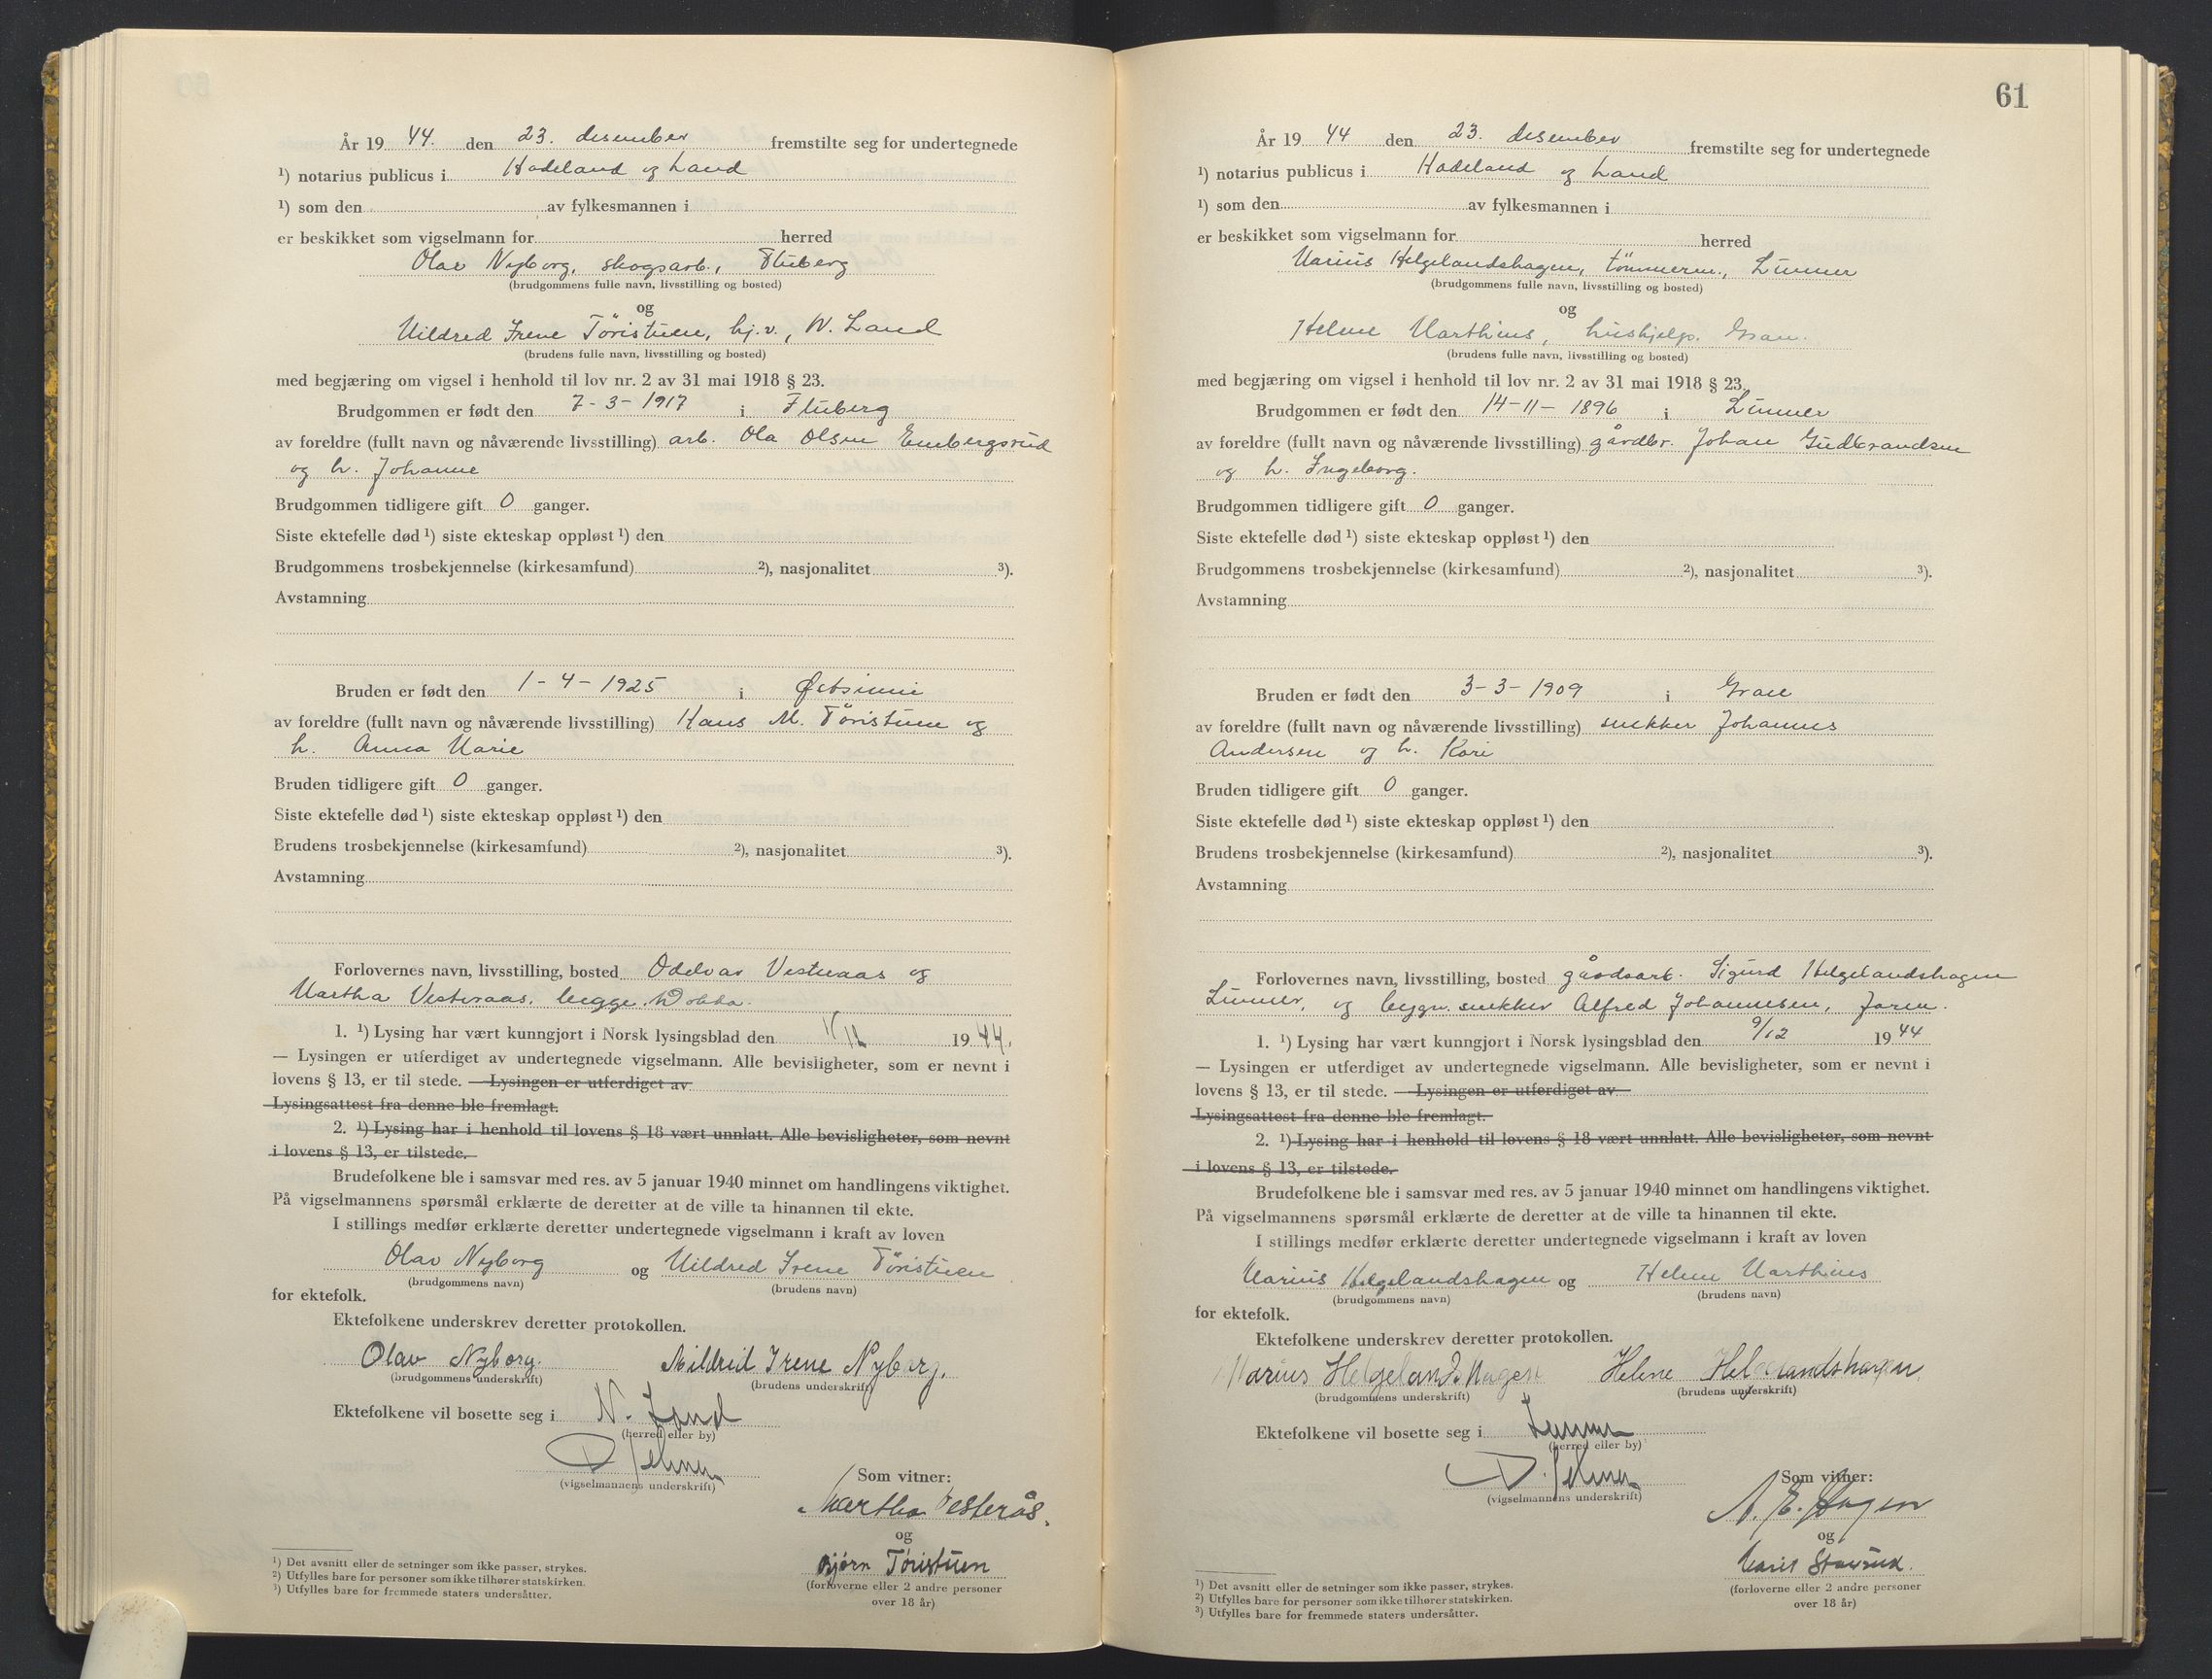 År 19 44. den 23. desember fremstilte seg for undertegnede
¹) notarius publicus i Hadeland og Land
¹) som den av fylkesmannen i
er beskikket som vigselmann for herred
Olav Nyborg, skogsarb., Fluberg
(brudgommens fulle navn, livsstilling og bosted)
og
Mildred Irene Töristuen, hj.v., N. Land
(brudens fulle navn, livsstilling og bosted)
med begjæring om vigsel i henhold til lov nr. 2 av 31 mai 1918 § 23.
Brudgommen er født den 7-3-1917 i Fluberg
av foreldre (fullt navn og nåværende livsstilling) arb. Ola Olsen Embergsrud
og h. Johanne
Brudgommen tidligere gift 0 ganger.
Siste ektefelle død ¹) siste ekteskap oppløst ¹) den
Brudgommens trosbekjennelse (kirkesamfund) ²), nasjonalitet ³).
Avstamning
Bruden er født den 1-4-1925 i
av foreldre (fullt navn og nåværende livsstilling) Hans M. Töristuen og
h. Anna Marie
Bruden tidligere gift 0 ganger.
Siste ektefelle død ¹) siste ekteskap oppløst ¹) den
Brudens trosbekjennelse (kirkesamfund) ²), nasjonalitet ³).
Avstamning
Forlovernes navn, livsstilling, bosted Odelvar Vesteraas og
Martha Vesteraas, begge Dokka.
1. ¹) Lysing har vært kunngjort i Norsk lysingsblad den 19 44.
— Lysingen er utferdiget av undertegnede vigselmann. Alle bevisligheter, som er nevnt i
lovens § 13, er til stede. — Lysingen er utferdiget av
Lysingsattest fra denne ble fremlagt.
2. ¹) Lysing har i henhold til lovens § 18 vært unnlatt. Alle bevisligheter, som nevnt
i lovens § 13, er tilstede.
Brudefolkene ble i samsvar med res. av 5 januar 1940 minnet om handlingens viktighet.
På vigselmannens spørsmål erklærte de deretter at de ville ta hinannen til ekte.
I stillings medfør erklærte deretter undertegnede vigselmann i kraft av loven
Olav Nyborg og Mildred Irene Töristuen
(brudgommens navn) (brudens navn)
for ektefolk.
Ektefolkene underskrev deretter protokollen.
Olav Nyborg. Mildred Irene Nyborg.
(brudgommens underskrift) (brudens underskrift)
Ektefolkene vil bosette seg i N. Land
(herred eller by)
(vigselmannens underskrift)
Som vitner:
Martha Vesterås.
og
Bjørn Töristuen
(forloverne eller 2 andre personer
over 18 år)
¹) Det avsnitt eller de setninger som ikke passer, strykes.
²) Utfylles bare for personer som ikke tilhører statskirken.
³) Utfylles bare for fremmede staters undersåtter.
61
År 19 44 den 23. desember fremstilte seg for undertegnede
¹) notarius publicus i Hadeland og Land
¹) som den av fylkesmannen i
er beskikket som vigselmann for herred
Marius Helgelandshagen, tömmerm., Lunner
(brudgommens fulle navn, livsstilling og bosted)
og
Helene Marthins, hushjelp. Gran.
(brudens fulle navn, livsstilling og bosted)
med begjæring om vigsel i henhold til lov nr. 2 av 31 mai 1918 § 23.
Brudgommen er født den 14-11-1896 i Lunner
av foreldre (fullt navn og nåværende livsstilling) gårdbr. Johan Gudbrandsen
og h. Ingeborg.
Brudgommen tidligere gift 0 ganger.
Siste ektefelle død ¹) siste ekteskap oppløst ¹) den
Brudgommens trosbekjennelse (kirkesamfund) ²), nasjonalitet ³).
Avstamning
Bruden er født den 3-3-1909 i Gran
av foreldre (fullt navn og nåværende livsstilling) snekker Johannes
Andersen og h. Kari
Bruden tidligere gift 0 ganger.
Siste ektefelle død ¹) siste ekteskap oppløst ¹) den
Brudens trosbekjennelse (kirkesamfund) ²), nasjonalitet ³).
Avstamning
Forlovernes navn, livsstilling, bosted gårdsarb. Sigurd Helgelandshagen
Lunner, og bygn.snekker Alfred Johannesen, Jaren.
1. ¹) Lysing har vært kunngjort i Norsk lysingsblad den 9/12 19 44
— Lysingen er utferdiget av undertegnede vigselmann. Alle bevisligheter, som er nevnt i
lovens § 13, er til stede. — Lysingen er utferdiget av
Lysingsattest fra denne ble fremlagt.
2. ¹) Lysing har i henhold til lovens § 18 vært unnlatt. Alle bevisligheter, som nevnt
i lovens § 13, er tilstede.
Brudefolkene ble i samsvar med res. av 5 januar 1940 minnet om handlingens viktighet.
På vigselmannens spørsmål erklærte de deretter at de ville ta hinannen til ekte.
I stillings medfør erklærte deretter undertegnede vigselmann i kraft av loven
Marius Helgelandshagen og Helene Marthins
(brudgommens navn) (brudens navn)
for ektefolk.
Ektefolkene underskrev deretter protokollen.
Marius Helgelandshagen Helene Helgelandshagen
(brudgommens underskrift) (brudens underskrift)
Ektefolkene vil bosette seg i Lunner
(herred eller by)
(vigselmannens underskrift)
Som vitner:
A. E. Hagen
og
Marit
(forloverne eller 2 andre personer
over 18 år)
¹) Det avsnitt eller de setninger som ikke passer, strykes.
²) Utfylles bare for personer som ikke tilhører statskirken.
³) Utfylles bare for fremmede staters undersåtter.